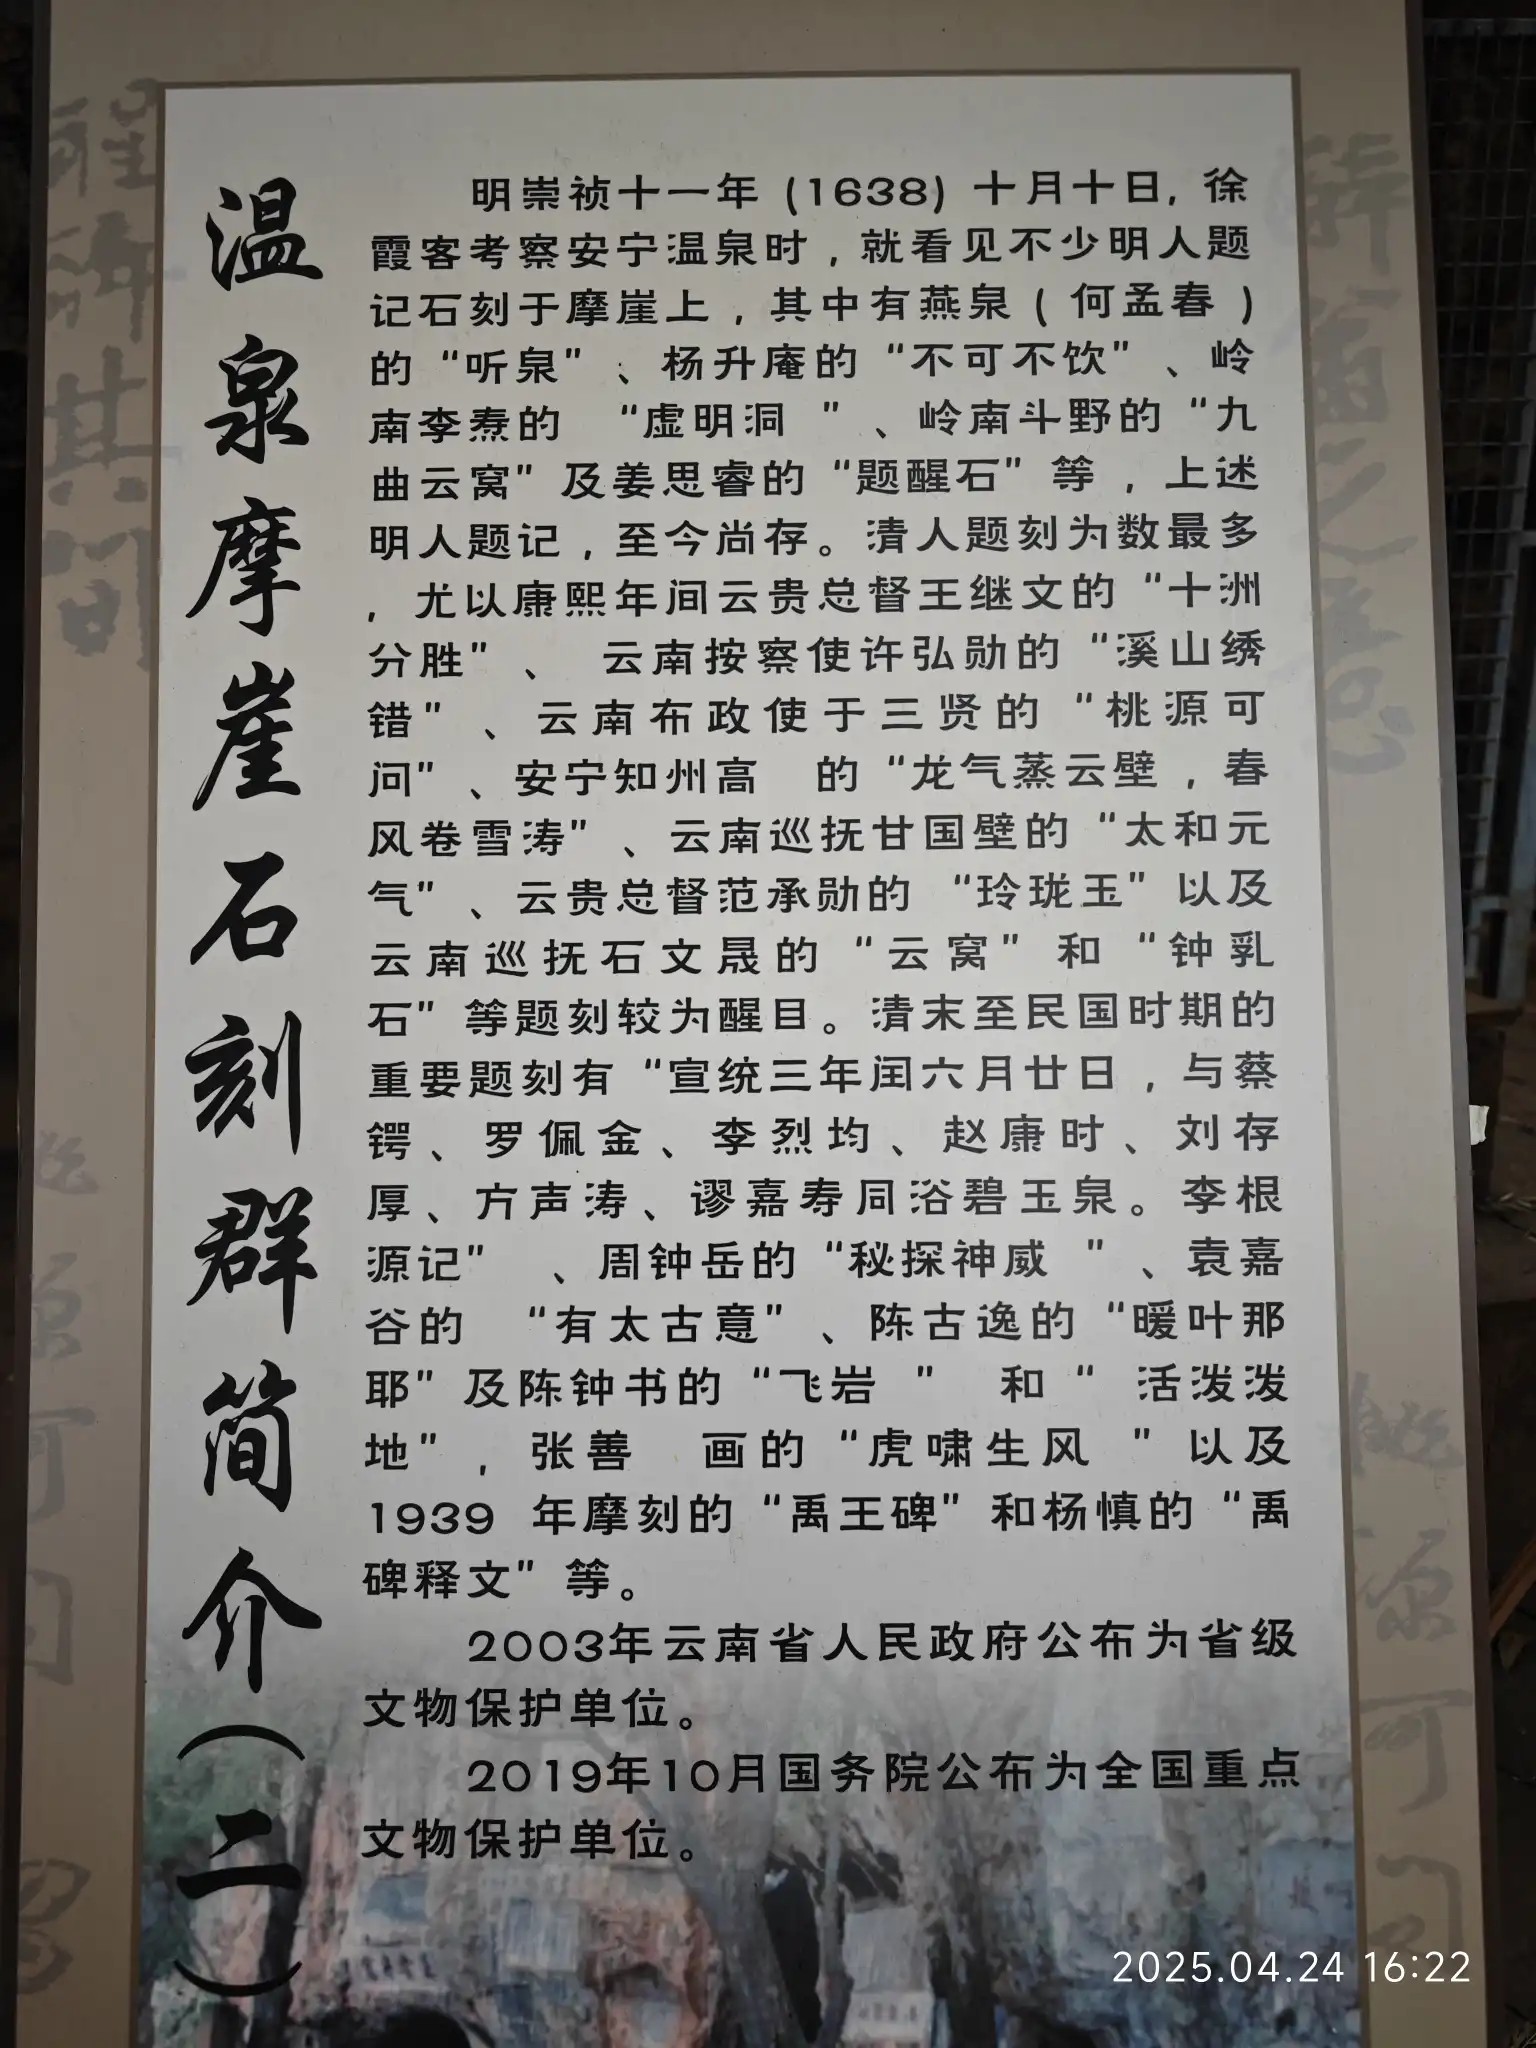 温泉摩崖石刻群简介（二）
明崇祯十一年 (1638) 十月十日, 徐
霞客考察安宁温泉时，就看见不少明人题
记石刻于摩崖上，其中有燕泉(何孟春)
的“听泉”、杨升庵的“不可不饮”、岭
南李焘的 “虚明洞 ”、岭南斗野的“九
曲云窝”及姜思睿的“题醒石”等，上述
明人题记，至今尚存。清人题刻为数最多
，尤以康熙年间云贵总督王继文的“十洲
分胜”、 云南按察使许弘勋的“溪山绣
错”、云南布政使于三贤的“桃源可
问”、安宁知州高 的“龙气蒸云壁，春
风卷雪涛”、云南巡抚甘国壁的“太和元
气”、云贵总督范承勋的 “玲珑玉”以及
云南巡抚石文晟的“云窝”和“钟乳
石”等题刻较为醒目。清末至民国时期的
重要题刻有“宣统三年闰六月廿日，与蔡
锷、罗佩金、李烈均、赵康时、刘存
厚、方声涛、谬嘉寿同浴碧玉泉。李根
源记” 、周钟岳的“秘探神威 ”、袁嘉
谷的 “有太古意”、陈古逸的“暖叶那
耶”及陈钟书的“飞岩 ” 和“ 活泼泼
地”，张善 画的“虎啸生风 ”以及
1939 年摩刻的“禹王碑”和杨慎的“禹
碑释文”等。
2003年云南省人民政府公布为省级
文物保护单位。
2019年10月国务院公布为全国重点
文物保护单位。
2025.04.24 16:22